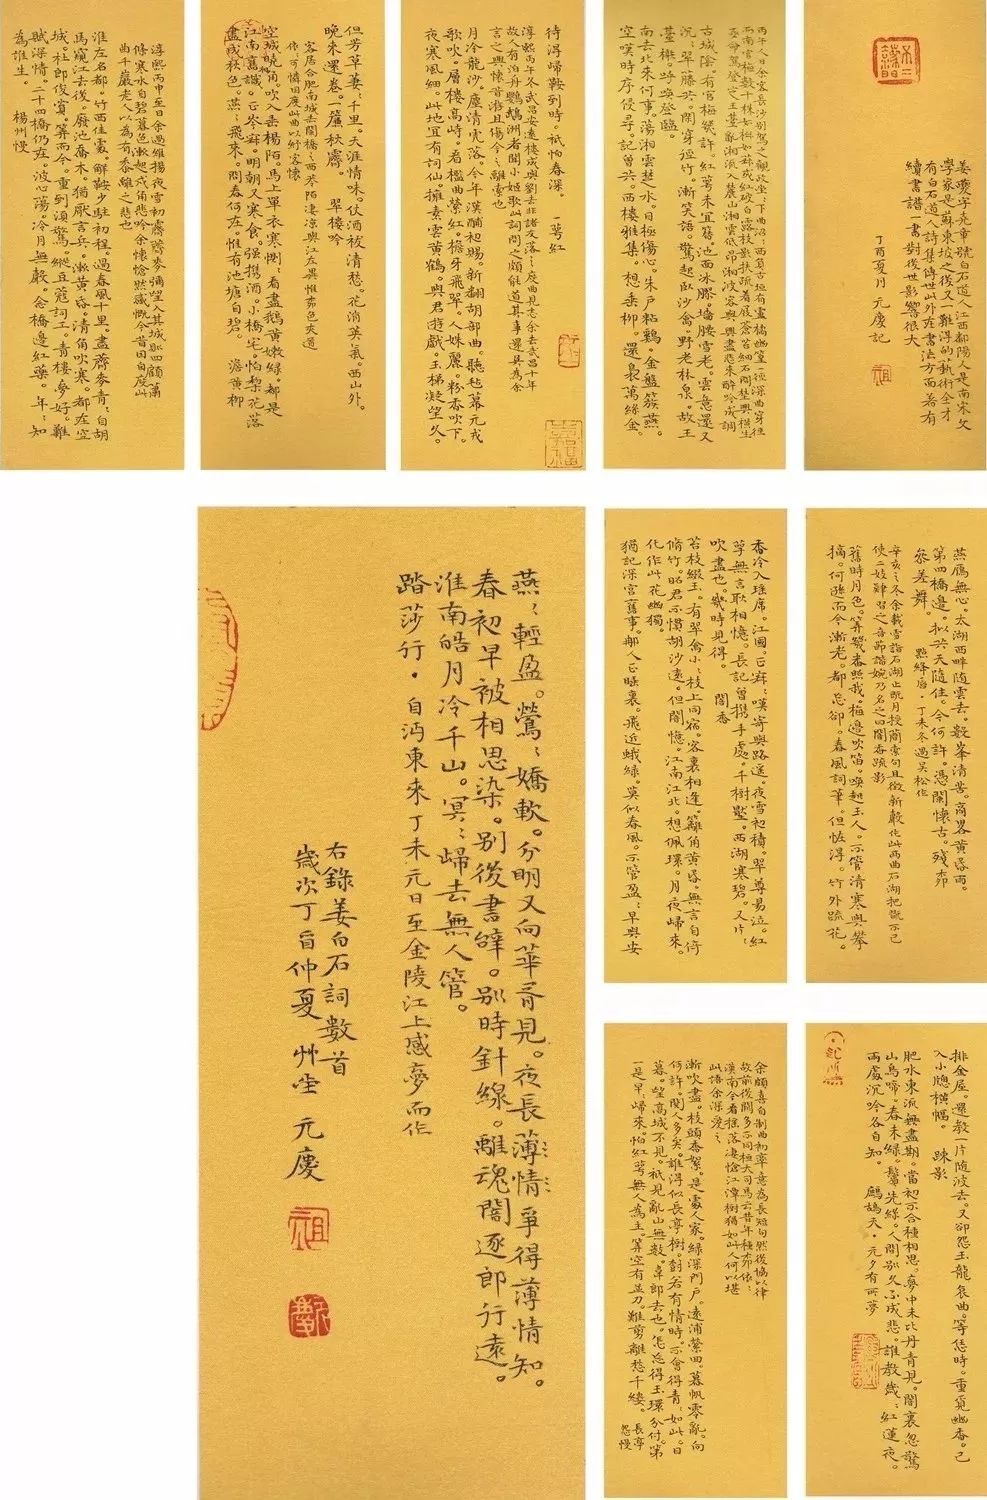 姜夔字堯章號白石道人江西鄱陽人是南宋文
學家是蘇東坡之後又一難得的藝術全才
有白石道人詩集傳世此外在書法方面著有
續書譜一書對後世影響很大
丁酉夏月 元慶記
丙午人日余客長沙別駕之觀政堂、下曲沼、西負古垣有盧橘幽篁一徑深曲穿徑
而南官梅數十株如椒如菽或紅破白露枝影扶疏着屐蒼苔細石間野興橫生
亟命駕登定王臺亂湘流入麓山湘雲低昂湘波容與興盡悲來醉吟成調
古城陰。有官梅幾許。紅萼未宜簪。池面冰膠。墻腰雪老。雲意還又
沉:。翠藤共。閑穿徑竹。漸笑語。驚起卧沙禽。野老林泉。故王
臺榭。呼喚登臨。
南去北來何事。蕩湘雲楚水。目極傷心。朱戶粘鷄。金盤簇燕。
空嘆時序侵尋。記曾共。西樓雅集。想垂柳。還裊萬絲金。
待得歸鞍到時。衹怕春深。 一萼紅
淳熙丙午冬武昌安遠樓成與劉去非諸友落之度曲見志余去武昌十年
故人有泊舟鸚鵡洲者聞小姬歌此詞問之頗能道其事還吳為余
言之興懷昔游且傷今之離索也
月冷龍沙。塵清虎落。今年漢酺初賜。新翻胡部曲。聽氈幕元戎
歌吹。層樓高峙。看檻曲縈紅。檐牙飛翠。人姝麗。粉香吹下。
夜寒風細。此地宜有詞仙。擁素雲黃鶴。與君遊戲。玉梯凝望久。
但芳草萋:千里。天涯情味。仗酒祓清愁。花消英氣。西山外。
晚來還卷。一簾秋霽。 翠樓吟
客居合肥南城赤闌橋之西巷陌淒涼與江左異惟柳色夾道
依:可憐因度此曲以紓客懷
空城曉角。吹入垂楊陌。馬上單衣寒惻:。看盡鵝黃嫩綠。都是
江南舊識。正岑寂。明朝又寒食。強携酒。小橋宅。怕梨花落
盡成秋色。燕:飛來。問春何在。惟有池塘自碧。 澹黃柳
淳熙丙申至日余過維揚夜雪初霽薺麥彌望入其城則四顧蕭
條寒水自碧暮色漸起戍角悲吟余懷愴然感慨今昔因自度此
曲千巖老人以為有黍離之悲也
淮左名都。竹西佳處。解鞍少駐初程。過春風十里。盡薺麥青:。自胡
馬窺江去後。廢池喬木。猶厭言兵。漸黃昏。清角吹寒。都在空
城。杜郎俊賞。算而今。重到須驚。縱豆蔻詞工。青樓夢好。難
賦深情。二十四橋仍在。波心蕩。冷月無聲。念橋邊紅藥。年:知
為誰生。 楊州慢
燕雁無心。太湖西畔隨雲去。數峯清苦。商略黃昏雨。
第四橋邊。擬共天隨住。今何許。憑闌懷古。殘柳
參差舞。 點絳唇・丁未冬過吳松作
辛亥之冬余載雪詣石湖止既月授簡索句且徵新聲作此兩曲石湖把翫不已
使二妓肄習之音節諧婉乃名之曰闇香疏影
舊時月色。算幾番照我。梅邊吹笛。喚起玉人。不管清寒與攀
摘。何遜而今漸老。都忘卻。春風詞筆。但怪得。竹外疏花。
香冷入瑤席。江國。正寂:。嘆寄與路遥。夜雪初積。翠尊易泣。紅
萼無言耿相憶。長記曾携手處。千樹壓。西湖寒碧。又片:
吹盡也。幾時見得。 闇香
苔枝綴玉。有翠禽小:。枝上同宿。客裏相逢。籬角黃昏。無言自倚
脩竹。昭君不慣胡沙遠。但闇憶。江南江北。想佩環。月夜歸來。
化作此花幽獨。
猶記深宮舊事。那人正睡裏。飛近蛾綠。莫似春風。不管盈:。早與安
排金屋。還教一片隨波去。又卻怨玉龍哀曲。等恁時。重覓幽香。已
入小牎橫幅。 疎影
肥水東流無盡期。當初不合種相思。夢中未比丹青見。闇裏忽驚
山鳥啼。春未綠。鬢先絲。人間別久不成悲。誰教歲:紅蓮夜。
兩處沉吟各自知。 鷓鴣天・元夕有所夢
余頗喜自制曲初率意為長短句然後協以律
故前後闋多不同桓大司馬云昔年種柳依:
漢南今看搖落淒愴江潭樹猶如此人何以堪
此語余深愛之
漸吹盡。枝頭香絮。是處人家。綠深門戶。遠浦縈回。暮帆零亂。向
何許。閱人多矣。誰得似長亭樹。樹若有情時。不會得青:如此。日
暮。望高城不見。衹見亂山無數。韋郎去也。怎忘得玉環分付。第
一是早:歸來。怕紅萼無人為主。算空有并刀。難剪離愁千縷。 長亭怨慢
燕:輕盈。鶯:嬌軟。分明又向華胥見。夜長薄情爭得薄情知。
春初早被相思染。別後書辭。別時針線。離魂闇逐郎行遠。
淮南皓月冷千山。冥:歸去無人管。
踏莎行・自沔東來丁未元日至金陵江上感夢而作
右錄姜白石詞數首
歲次丁酉仲夏艸堂 元慶